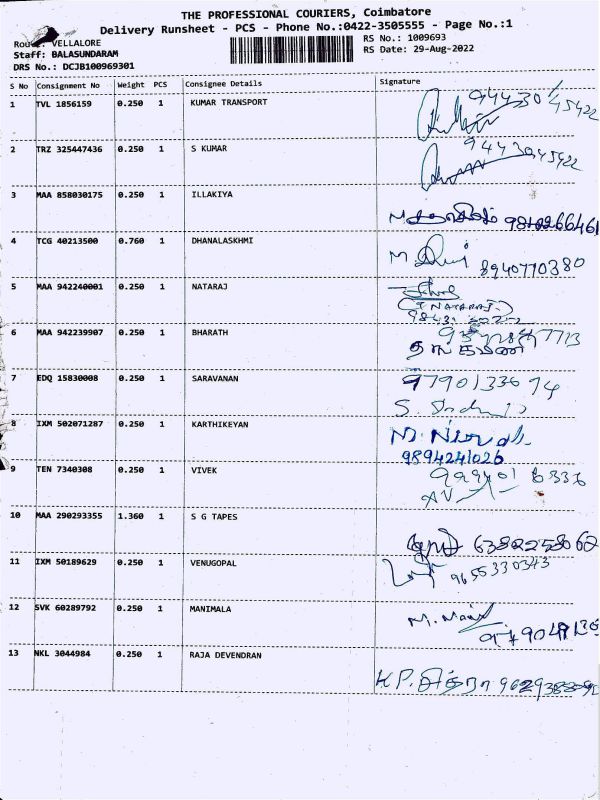 THE PROFESSIONAL COURIERS, Coimbatore
Delivery Runsheet - PCS - Phone No.:0422-3505555 - Page No.:1
VELLALORE
RS No.: 1009693
Staff: BALASUNDARAM
RS Date: 29-Aug-2022
DRS No.: DCJB100969301
S No Consignment No Weight PCS Consignee Details Signature
1 TVL 1856159 0.250 1 KUMAR TRANSPORT 9443045422
2 TRZ 325447436 0.250 1 S KUMAR 9443045422
3 MAA 858030175 0.250 1 ILLAKIYA
4 TCG 40213500 0.760 1 DHANALASKHMI M 8940710380
5 MAA 942240001 0.250 1 NATARAJ
(T NATARAJ)
6 MAA 942239907 0.250 1 BHARATH
7 EDQ 15830008 0.250 1 SARAVANAN
S.
8 IXM 502071287 0.250 1 KARTHIKEYAN M.
9894241026
9 TEN 7340308 0.250 1 VIVEK
10 MAA 290293355 1.360 1 S G TAPES
11 IXM 50189629 0.250 1 VENUGOPAL 9655330343
12 SVK 60289792 0.250 1 MANIMALA M.
13 NKL 3044984 0.250 1 RAJA DEVENDRAN
K.P. சித்ரா